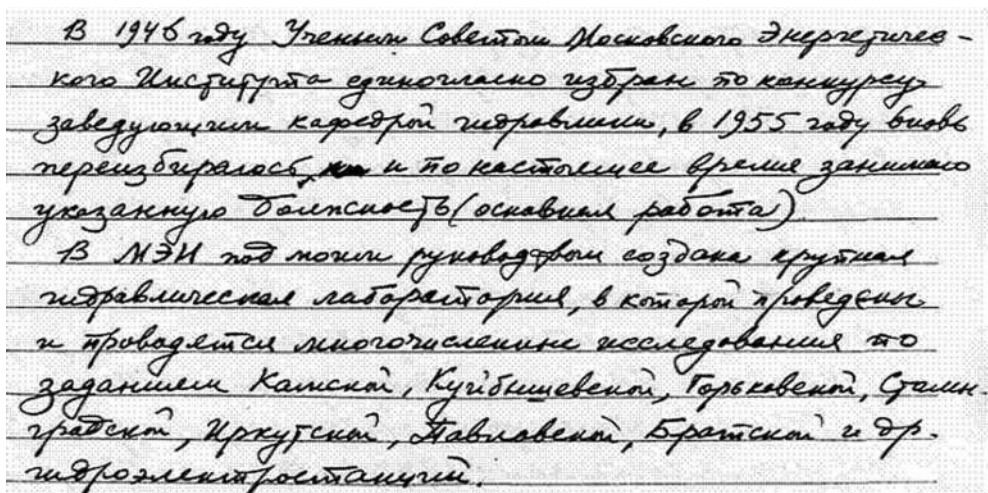 В 1946 году Ученым Советом Московского Энергетичес-
кого Института единогласно избран по конкурсу
заведующим кафедрой гидравлики, в 1955 году вновь
переизбирался и по настоящее время занимаю
указанную должность (основная работа).
В МЭИ под моим руководством создана крупная
гидравлическая лаборатория, в которой проведены
и проводятся многочисленные исследования по
заданием Камской, Куйбышевской, Горьковской, Сталин-
градской, Иркутской, Павловской, Братской и др.
гидроэлектростанций.